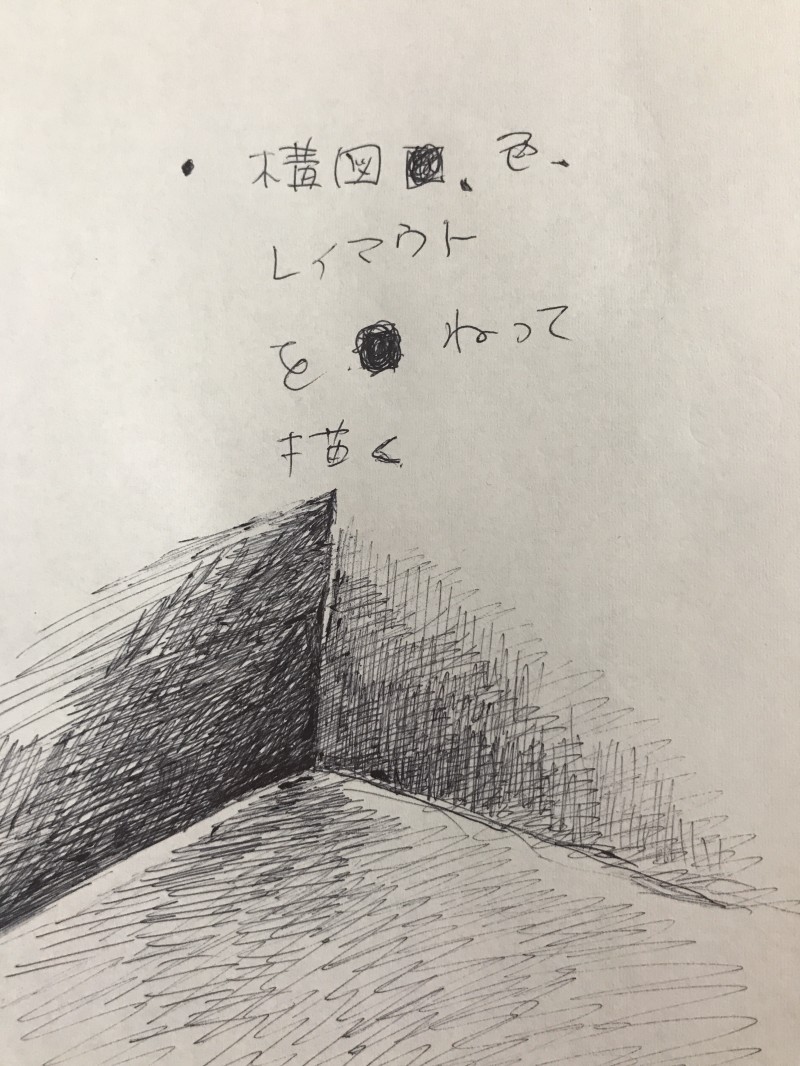 ・構図、色、
レイアウト
をねって
描く